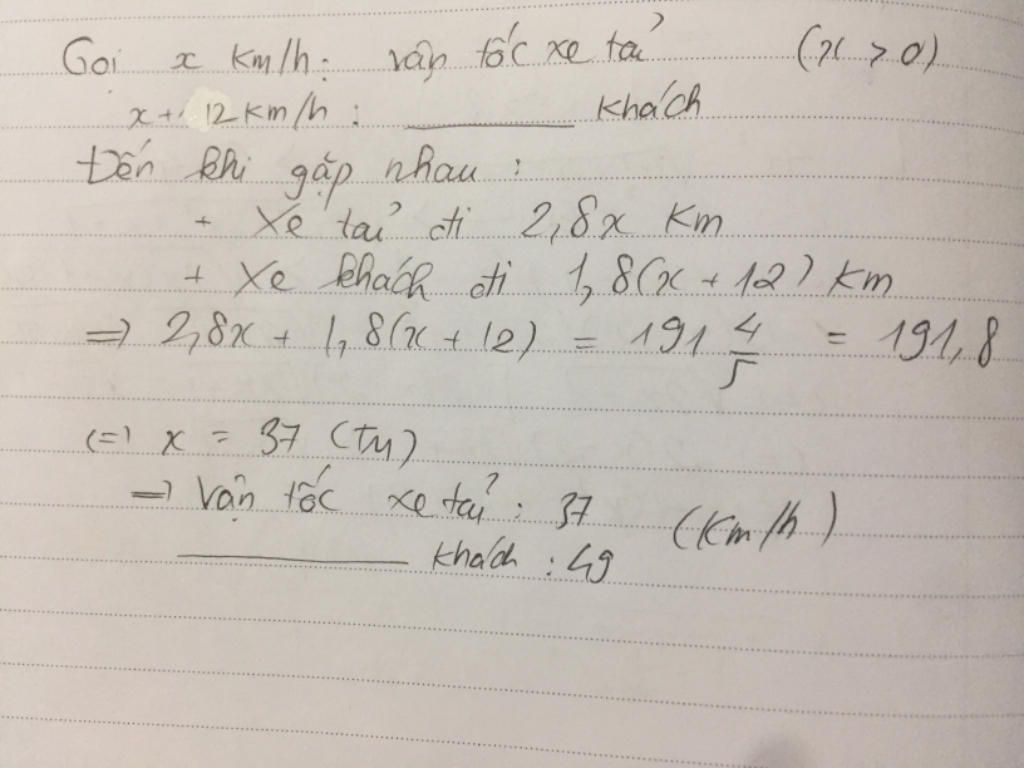 Gọi x km/h: vận tốc xe tải (x > 0)
x + 12 km/h : ________ khách
Đến khi gặp nhau :
+ Xe tải đi 2,8x km
+ Xe khách đi 1,8(x + 12) km
=> 2,8x + 1,8(x + 12) = 191 4/5 = 191,8
(=) x = 37 (TM)
=> Vận tốc xe tải : 37 (km/h)
________ khách : 49